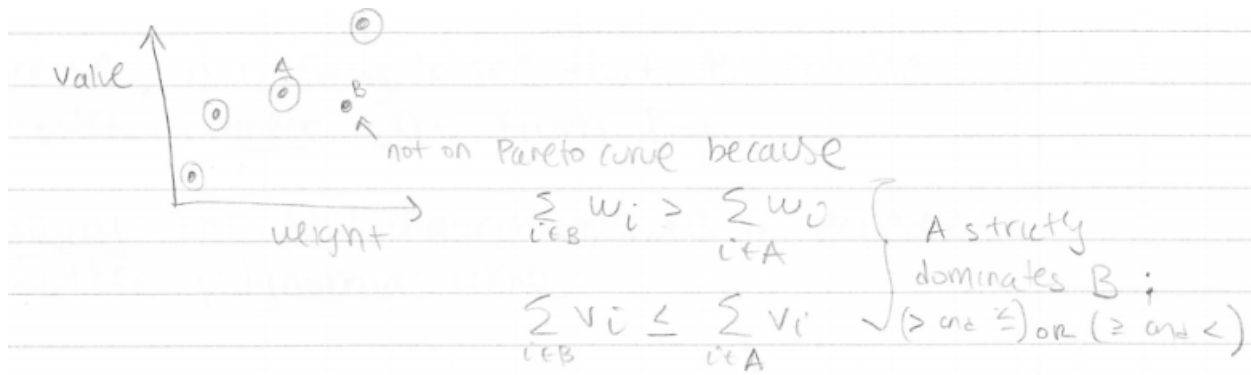 value
A
B
not on Pareto curve because
weight
∑ i∈B wi > ∑ i∈A wi
∑ i∈B vi ≤ ∑ i∈A vi
A strictly
dominates B ;
(> and ≤) OR (≥ and <)